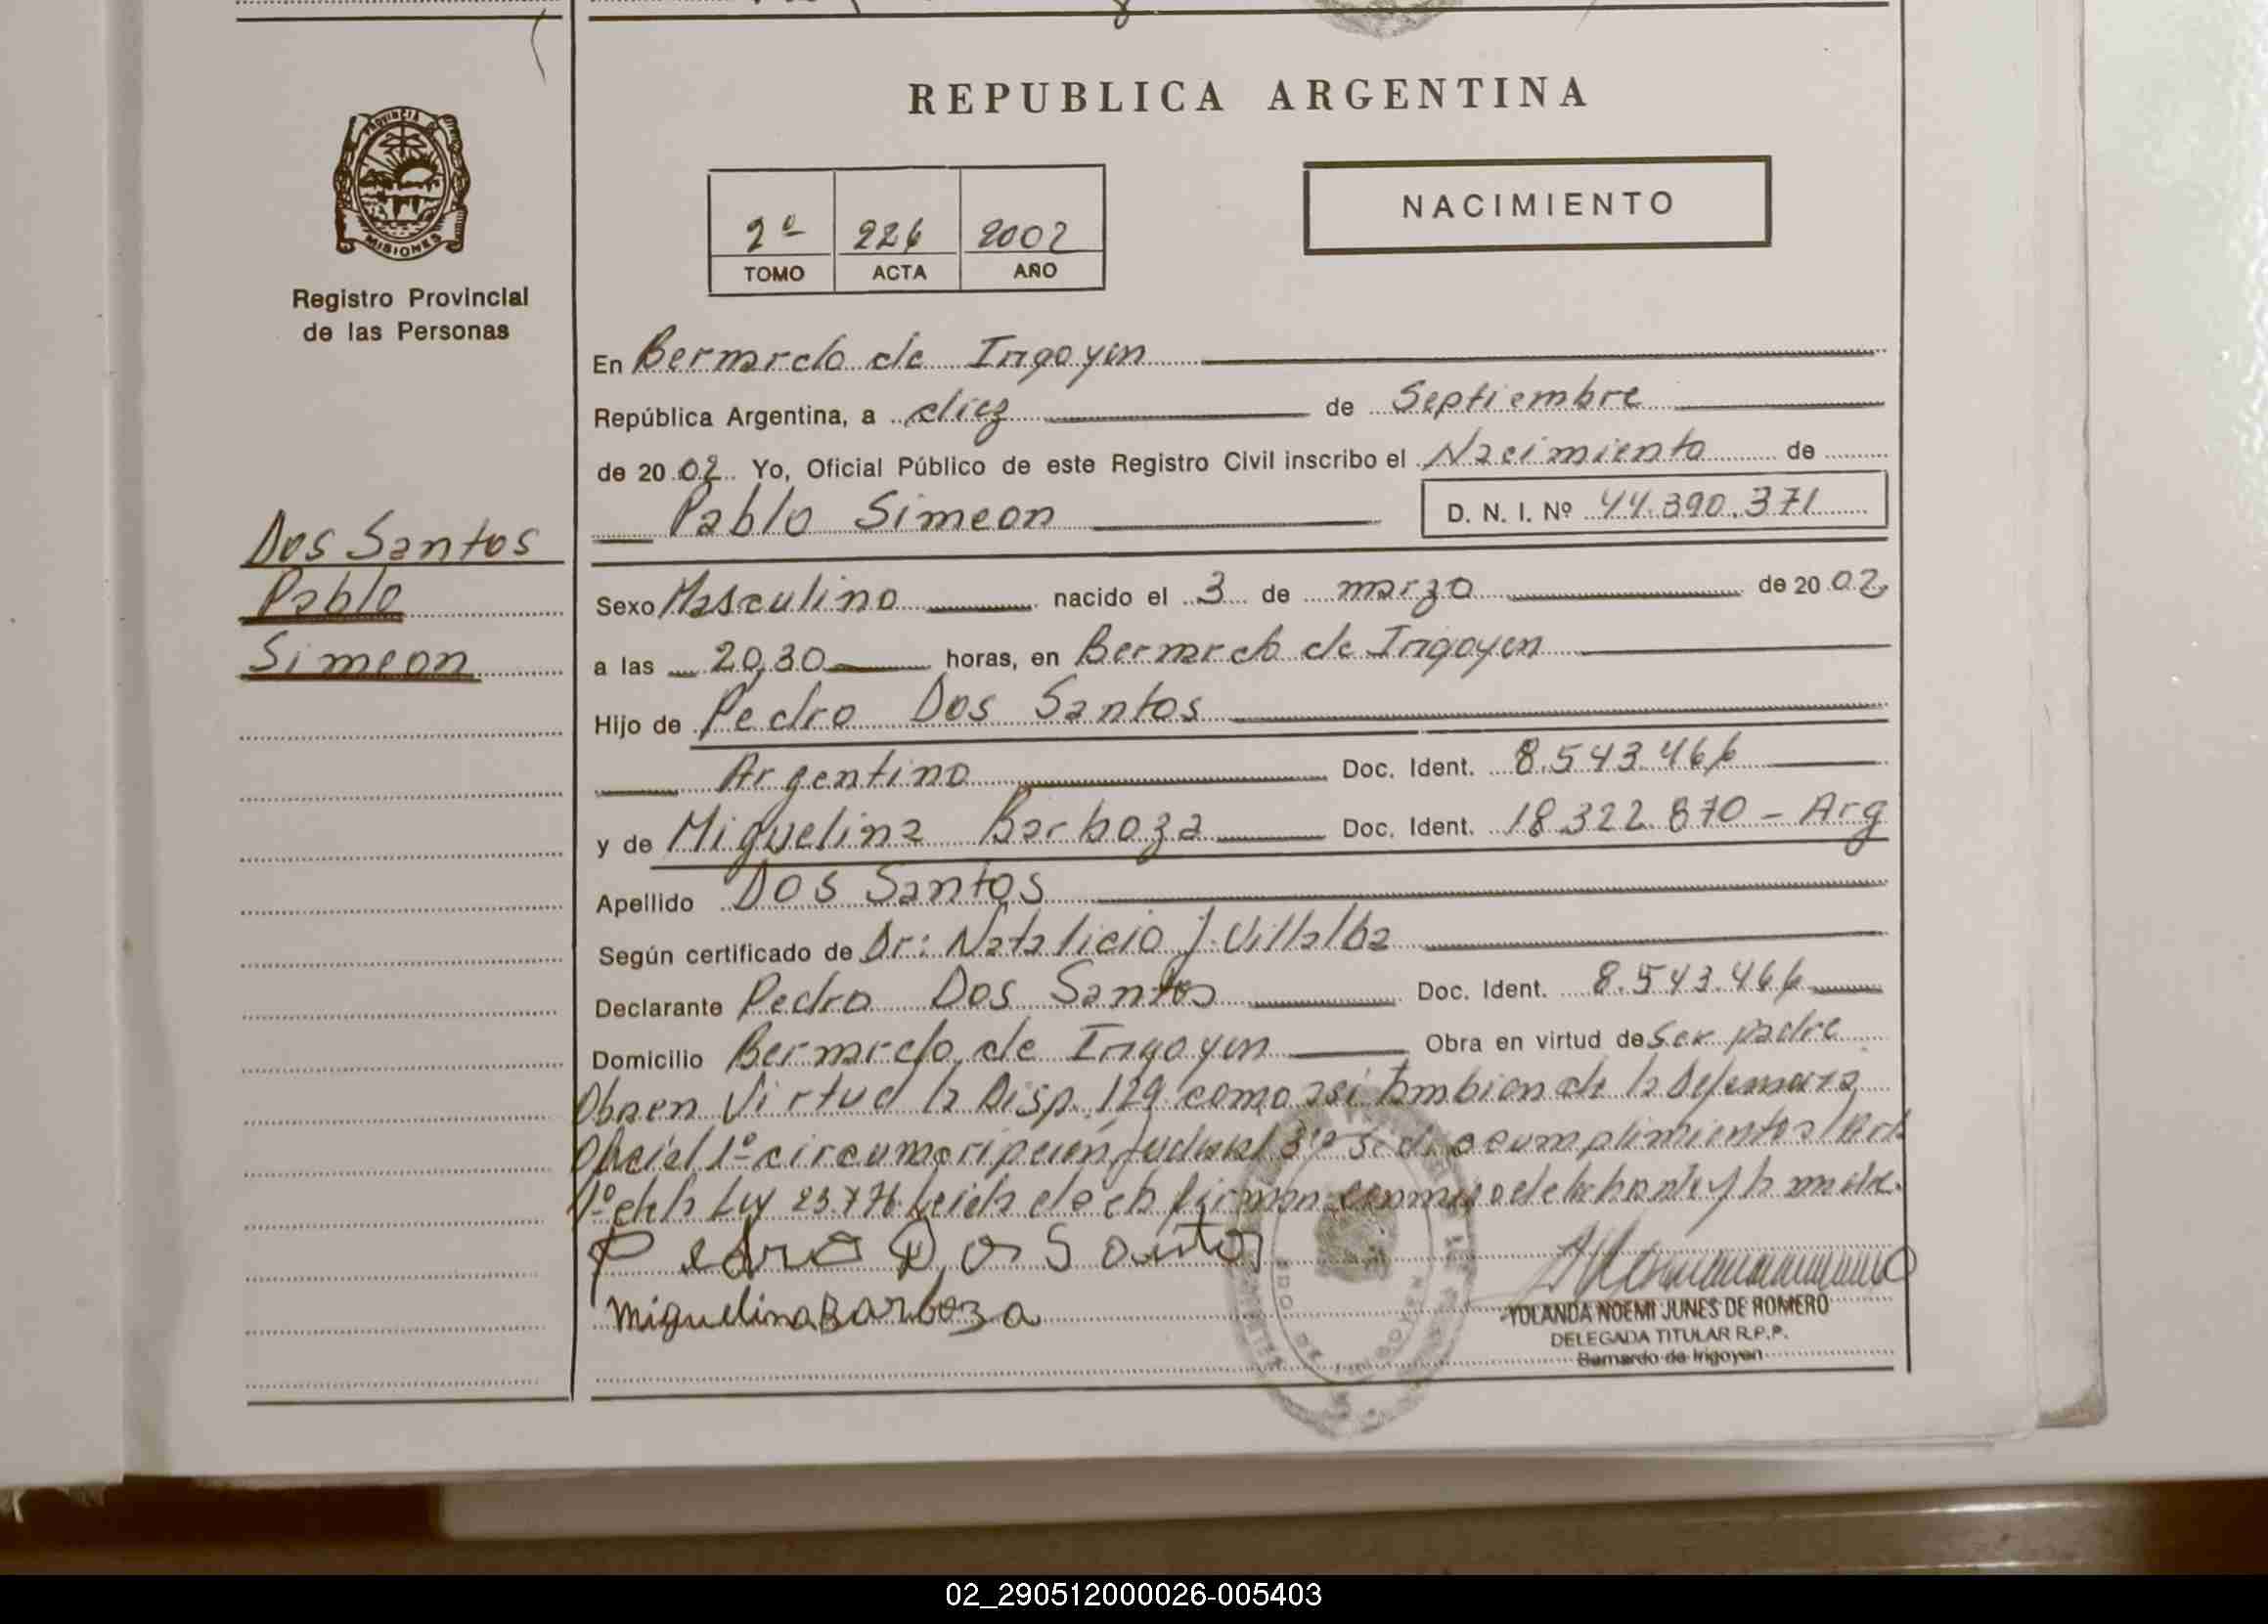 REPUBLICA ARGENTINA
PROVINCIA DE
MISIONES
Registro Provincial
de las Personas
NACIMIENTO
2º 226 2002
TOMO ACTA AÑO
En Bernardo de Irigoyen
República Argentina, a diez de Septiembre
de 2002 Yo, Oficial Público de este Registro Civil inscribo el Nacimiento de
Pablo Simeon D. N. I. Nº 44.390.371
Dos Santos
Pablo
Simeon
Sexo Masculino nacido el 3 de marzo de 2002
a las 20,30 horas, en Bernardo de Irigoyen
Hijo de Pedro Dos Santos
Argentino Doc. Ident. 8.543.466
y de Miguelina Barboza Doc. Ident. 18.322.870 - Arg
Apellido Dos Santos
Según certificado de Dr: Natalicio J. Villalba
Declarante Pedro Dos Santos Doc. Ident. 8.543.466
Domicilio Bernardo de Irigoyen Obra en virtud de Ser padre
Obra en Virtud la Disp. 129 como asi tambien de la Defensoria
Oficial 1º circunscripcion Judicial 3ra a cumplimiento Art
1º de la Ley 23.776 Leida el acta firman conmigo declarante y la madre.
Pedro Dos Santos
Miguelina Barboza
YOLANDA NOEMI JUNES DE ROMERO
DELEGADA TITULAR R.P.P.
Bernardo de Irigoyen
02_290512000026-005403